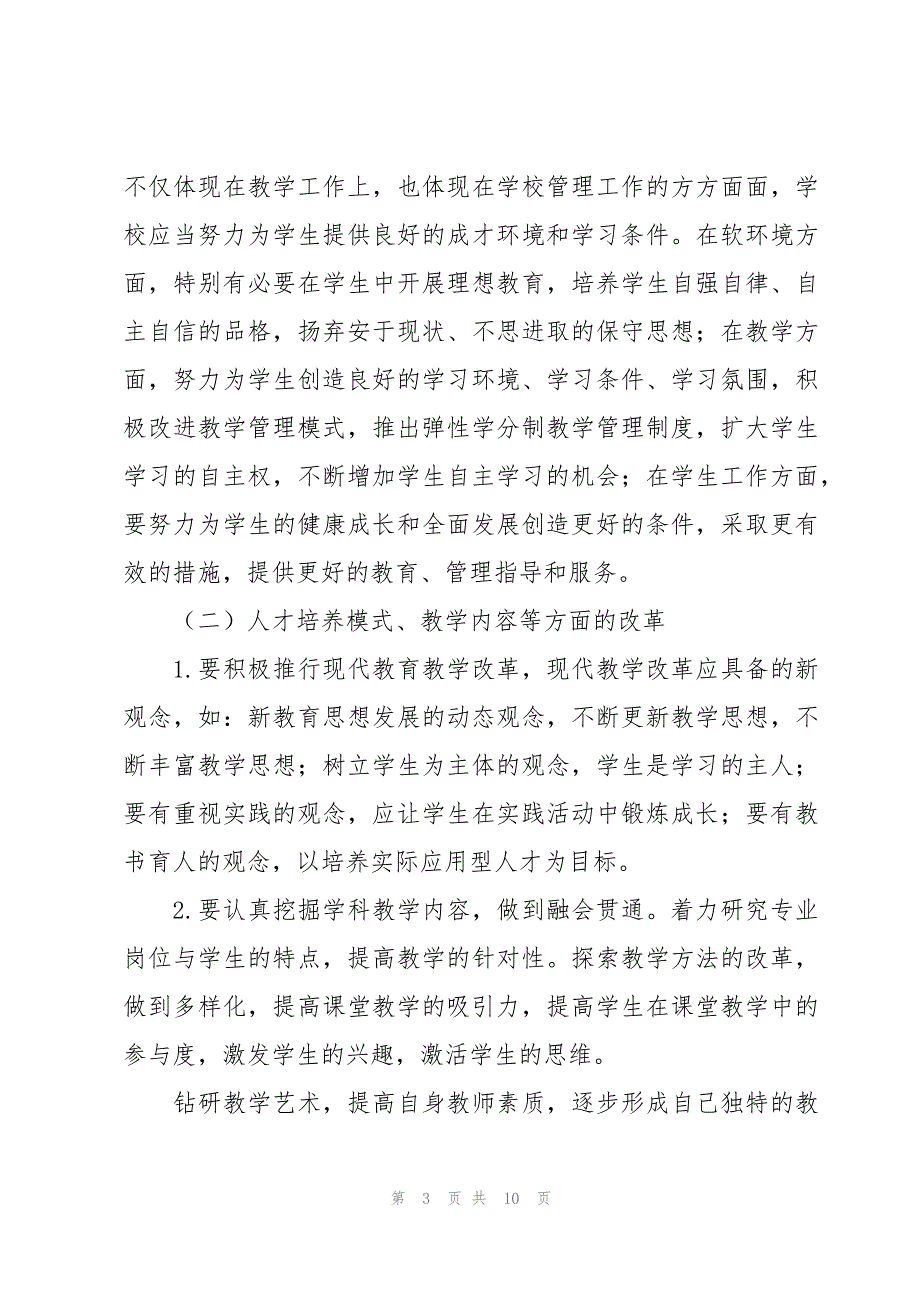 不仅体现在教学工作上，也体现在学校管理工作的方方面面，学
校应当努力为学生提供良好的成才环境和学习条件。在软环境方
面，特别有必要在学生中开展理想教育，培养学生自强自律、自
主自信的品格，扬弃安于现状、不思进取的保守思想；在教学方
面，努力为学生创造良好的学习环境、学习条件、学习氛围，积
极改进教学管理模式，推出弹性学分制教学管理制度，扩大学生
学习的自主权，不断增加学生自主学习的机会；在学生工作方面，
要努力为学生的健康成长和全面发展创造更好的条件，采取更有
效的措施，提供更好的教育、管理指导和服务。
（二）人才培养模式、教学内容等方面的改革
1.要积极推行现代教育教学改革，现代教学改革应具备的新
观念，如：新教育思想发展的动态观念，不断更新教学思想，不
断丰富教学思想；树立学生为主体的观念，学生是学习的主人；
要有重视实践的观念，应让学生在实践活动中锻炼成长；要有教
书育人的观念，以培养实际应用型人才为目标。
2.要认真挖掘学科教学内容，做到融会贯通。着力研究专业
岗位与学生的特点，提高教学的针对性。探索教学方法的改革，
做到多样化，提高课堂教学的吸引力，提高学生在课堂教学中的
参与度，激发学生的兴趣，激活学生的思维。
钻研教学艺术，提高自身教师素质，逐步形成自己独特的教
第 3 页 共 10 页